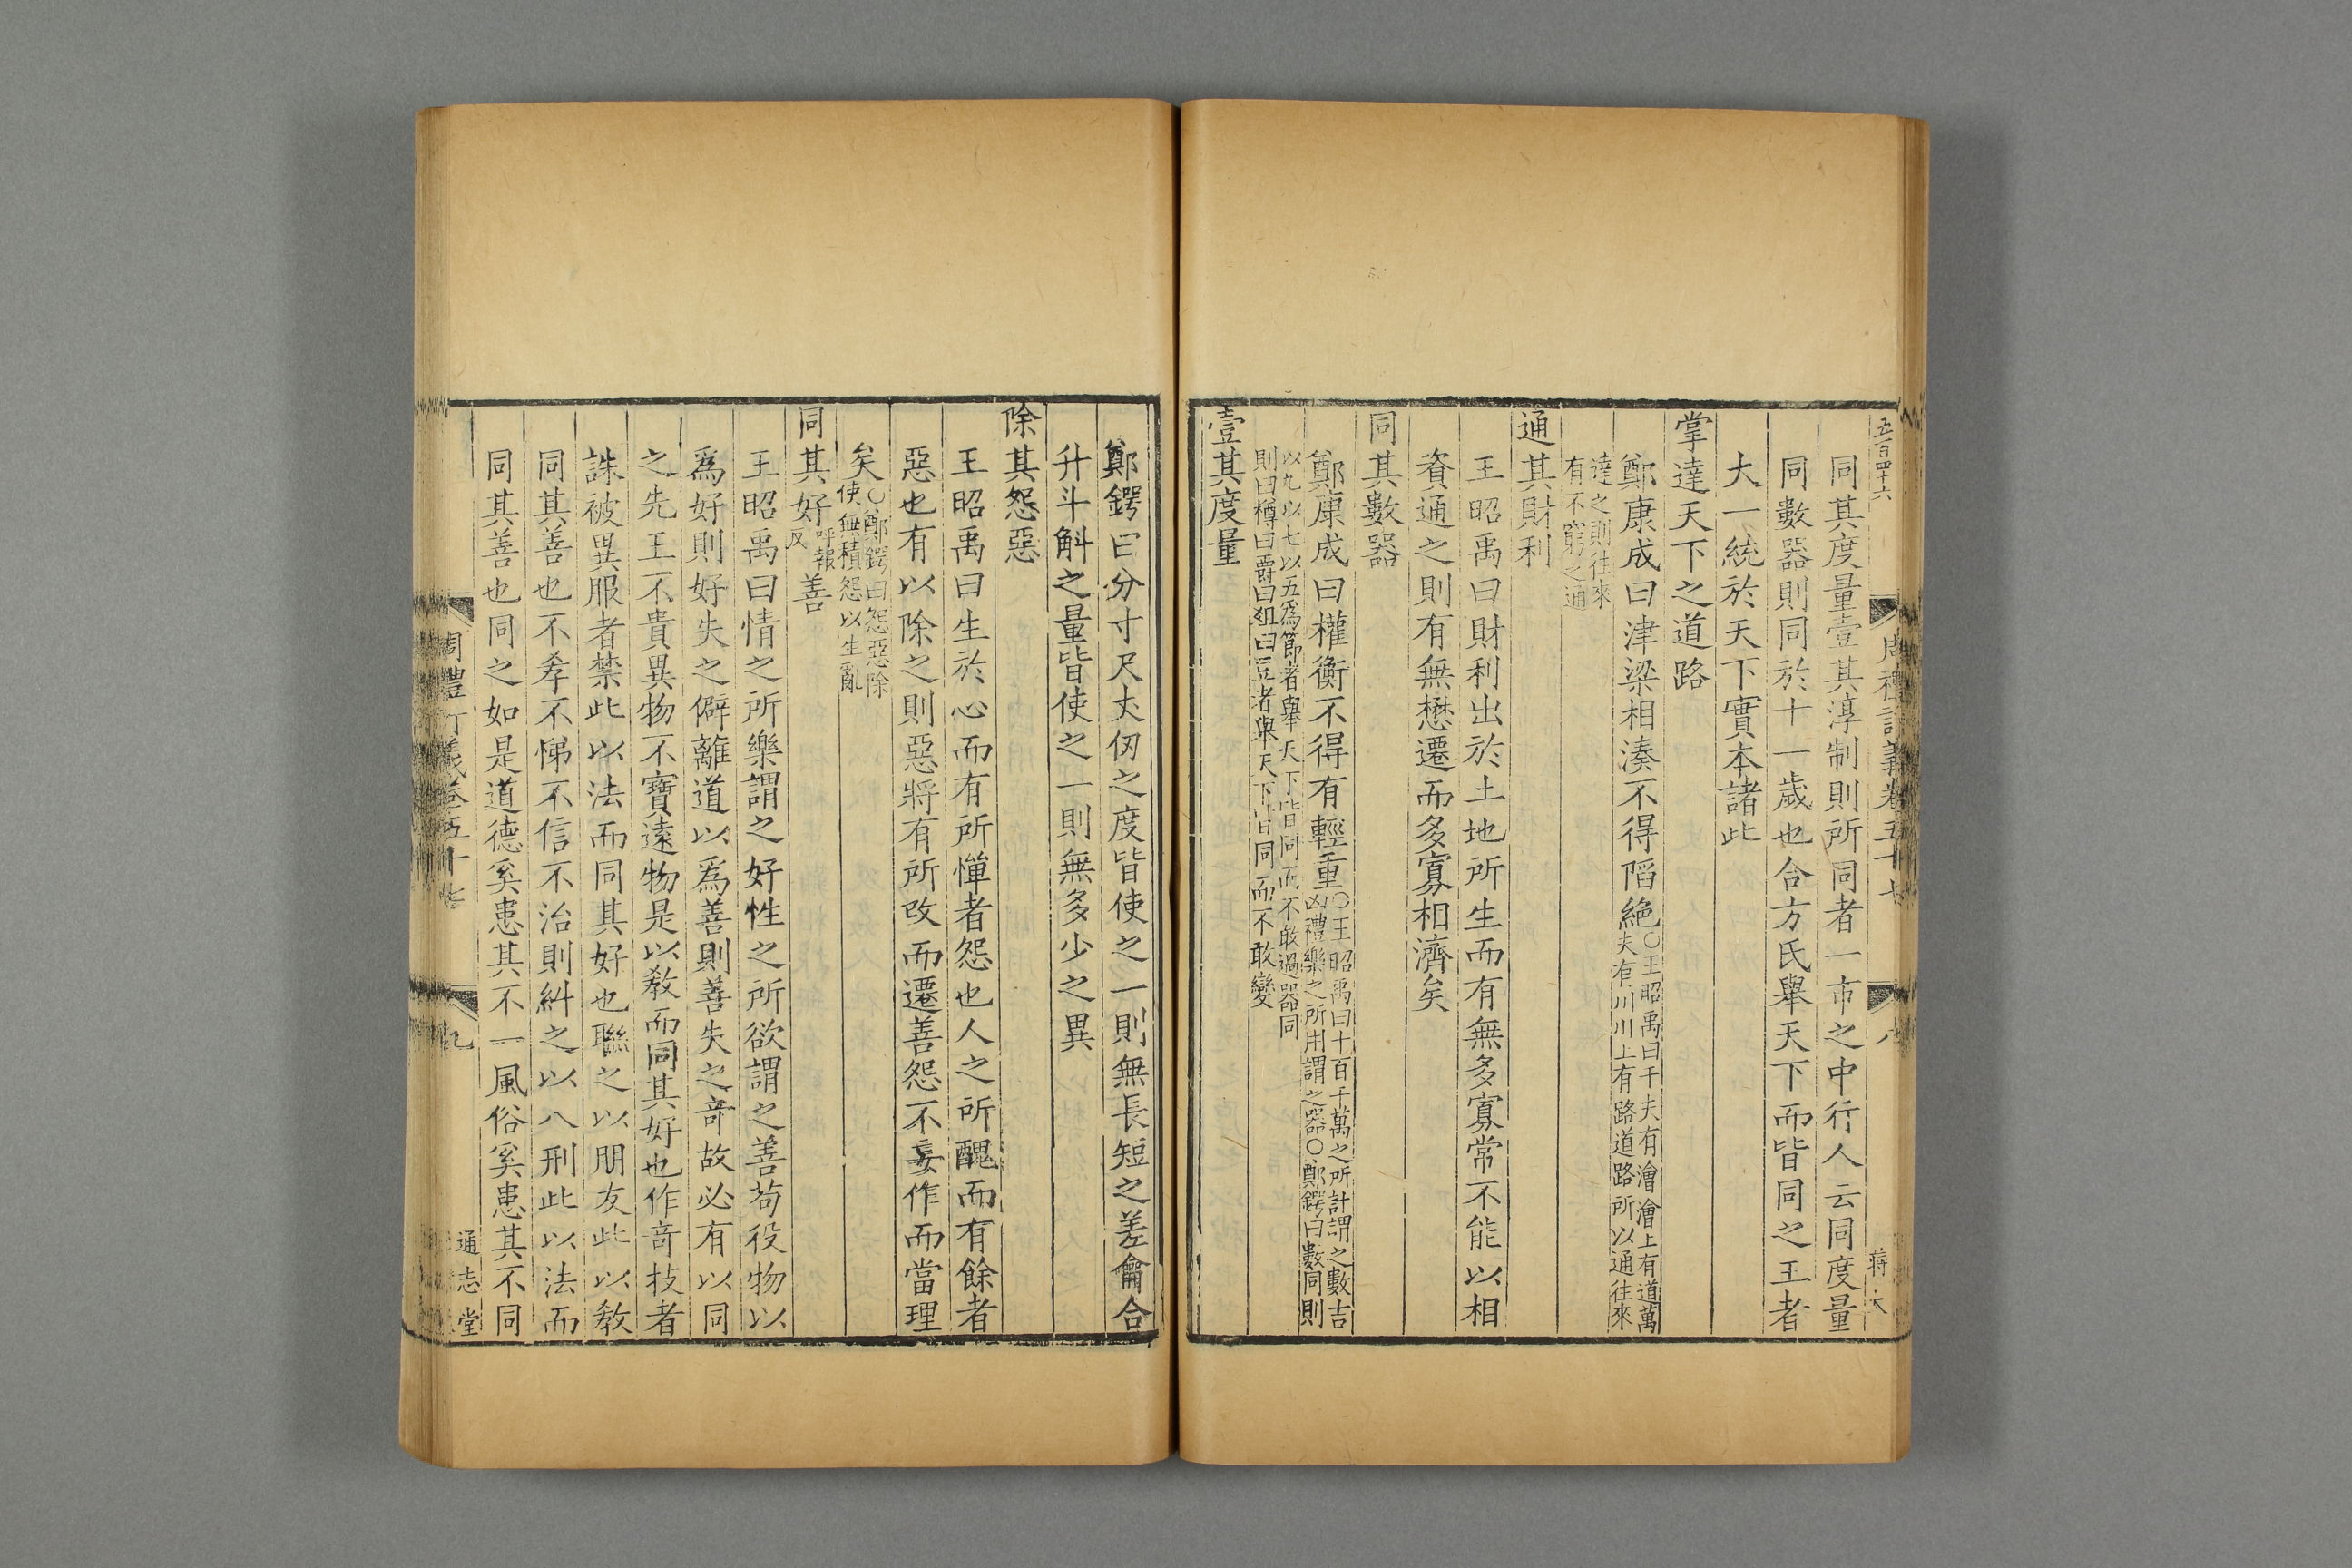 五百四十六
同其度量壹其淳制則所同者一市之中行人云同度量
同數器則同於十一歲也合方氏舉天下而皆同之王者
大一統於天下實本諸此
掌達天下之道路
鄭康成曰津梁相湊不得陷絶○王昭禹曰千夫有澮澮上有道萬
夫有川川上有路道路所以通往來
達之則往來
有不窮之通
通其財利
王昭禹曰財利出於土地所生而有無多寡常不能以相
資通之則有無懋遷而多寡相濟矣
同其數器
鄭康成曰權衡不得有輕重○王昭禹曰十百千萬之所計謂之數吉
凶禮樂之所用謂之器○鄭鍔曰數同則
以九以七以五爲節者舉天下皆同而不敢過器同
則曰樽曰爵曰俎曰豆者舉天下皆同而不敢變
壹其度量
周禮訂義卷五十七
八
蔣太
鄭鍔曰分寸尺丈仞之度皆使之一則無長短之差龠合
升斗斛之量皆使之一則無多少之異
除其怨惡
王昭禹曰生於心而有所憚者怨也人之所醜而有餘者
惡也有以除之則惡將有所改而遷善怨不妄作而當理
矣○鄭鍔曰怨惡除
使無積怨以生亂
同其好呼報反善
王昭禹曰情之所樂謂之好性之所欲謂之善苟役物以
爲好則好失之僻離道以爲善則善失之奇故必有以同
之先王不貴異物不寶遠物是以教而同其好也作奇技者
誅被異服者禁此以法而同其好也聯之以朋友此以教
同其善也不孝不悌不信不治則糾之以八刑此以法而
同其善也同之如是道德奚患其不一風俗奚患其不同
周禮訂義卷五十七
九
通志堂